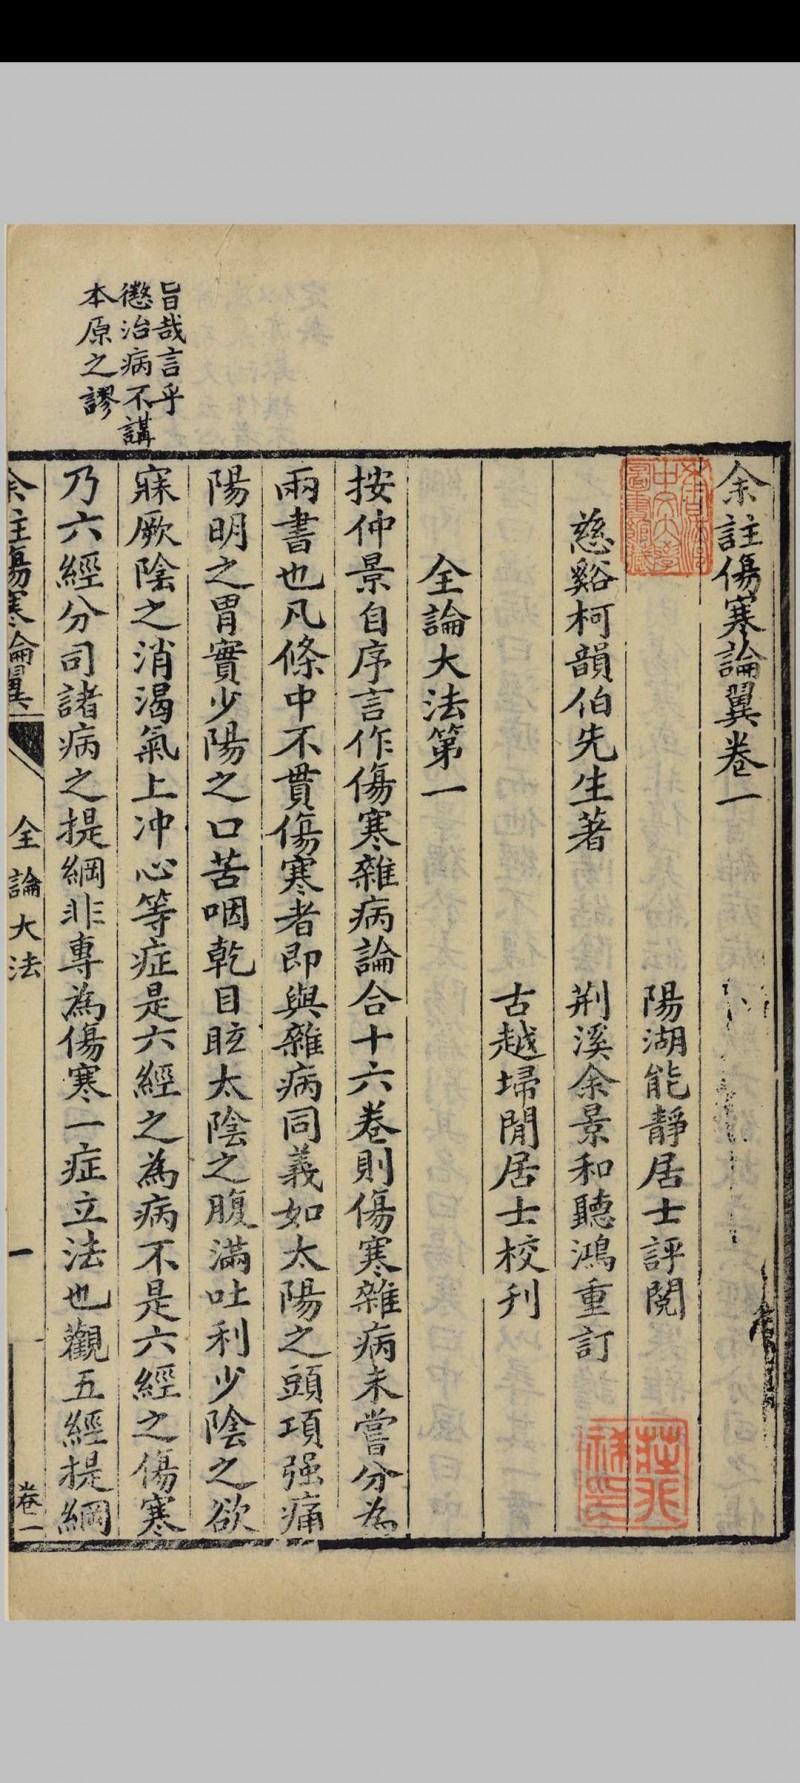 余註傷寒論翼卷一
陽湖能靜居士評閱
慈谿柯韻伯先生著
荆溪余景和聽鴻重訂
古越埽閒居士校刋
全論大法第一
按仲景自序言作傷寒雜病論合十六卷則傷寒雜病未嘗分為
兩書也凡條中不貫傷寒者即與雜病同義如太陽之頭項强痛
陽明之胃實少陽之口苦咽乾目眩太陰之腹滿吐利少陰之欲
寐厥陰之消渴氣上冲心等症是六經之為病不是六經之傷寒
乃六經分司諸病之提綱非專為傷寒一症立法也觀五經提綱
旨哉言乎
懲治病不講
本原之謬
余註傷寒論翼
全論大法
一
卷一